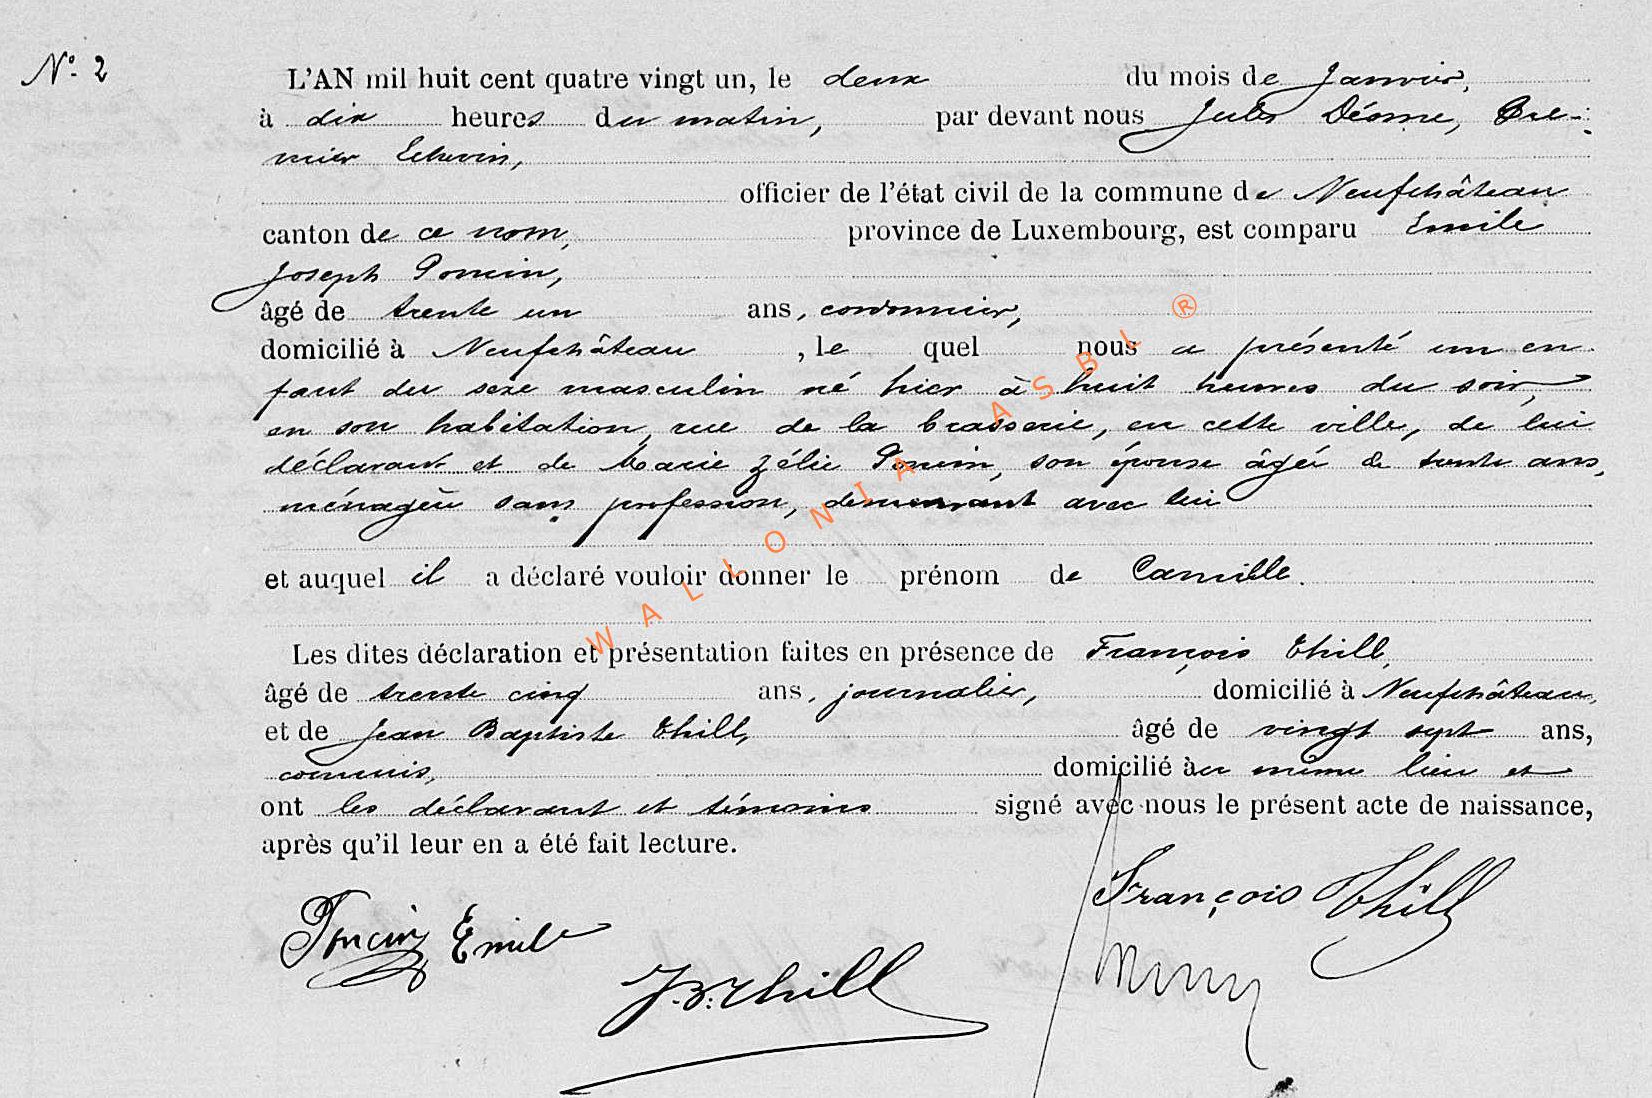 N° 2
L'AN mil huit cent quatre vingt un, le deux du mois de Janvier,
à dix heures du matin, par devant nous Jules Déome, Pre-
mier Echevin,
officier de l'état civil de la commune de Neufchâteau
canton de ce nom, province de Luxembourg, est comparu Emile
Joseph Poncin,
âgé de trente un ans, cordonnier,
domicilié à Neufchâteau, le quel nous a présenté un en-
fant du sexe masculin né hier à huit heures du soir,
en son habitation, rue de la brasserie, en cette ville, de lui
déclarant et de Marie Zélie Poncin, son épouse âgée de trente ans,
ménagère sans profession, demeurant avec lui
et auquel il a déclaré vouloir donner le prénom de Camille.
Les dites déclaration et présentation faites en présence de François Thill,
âgé de trente cinq ans, journalier, domicilié à Neufchâteau,
et de Jean Baptiste Thill, âgé de vingt sept ans,
commis, domicilié au même lieu et
ont les déclarant et témoins signé avec nous le présent acte de naissance,
après qu'il leur en a été fait lecture.
François Thill
Poncin Emile
J.B. Thill
WALLONIA ASBL ®